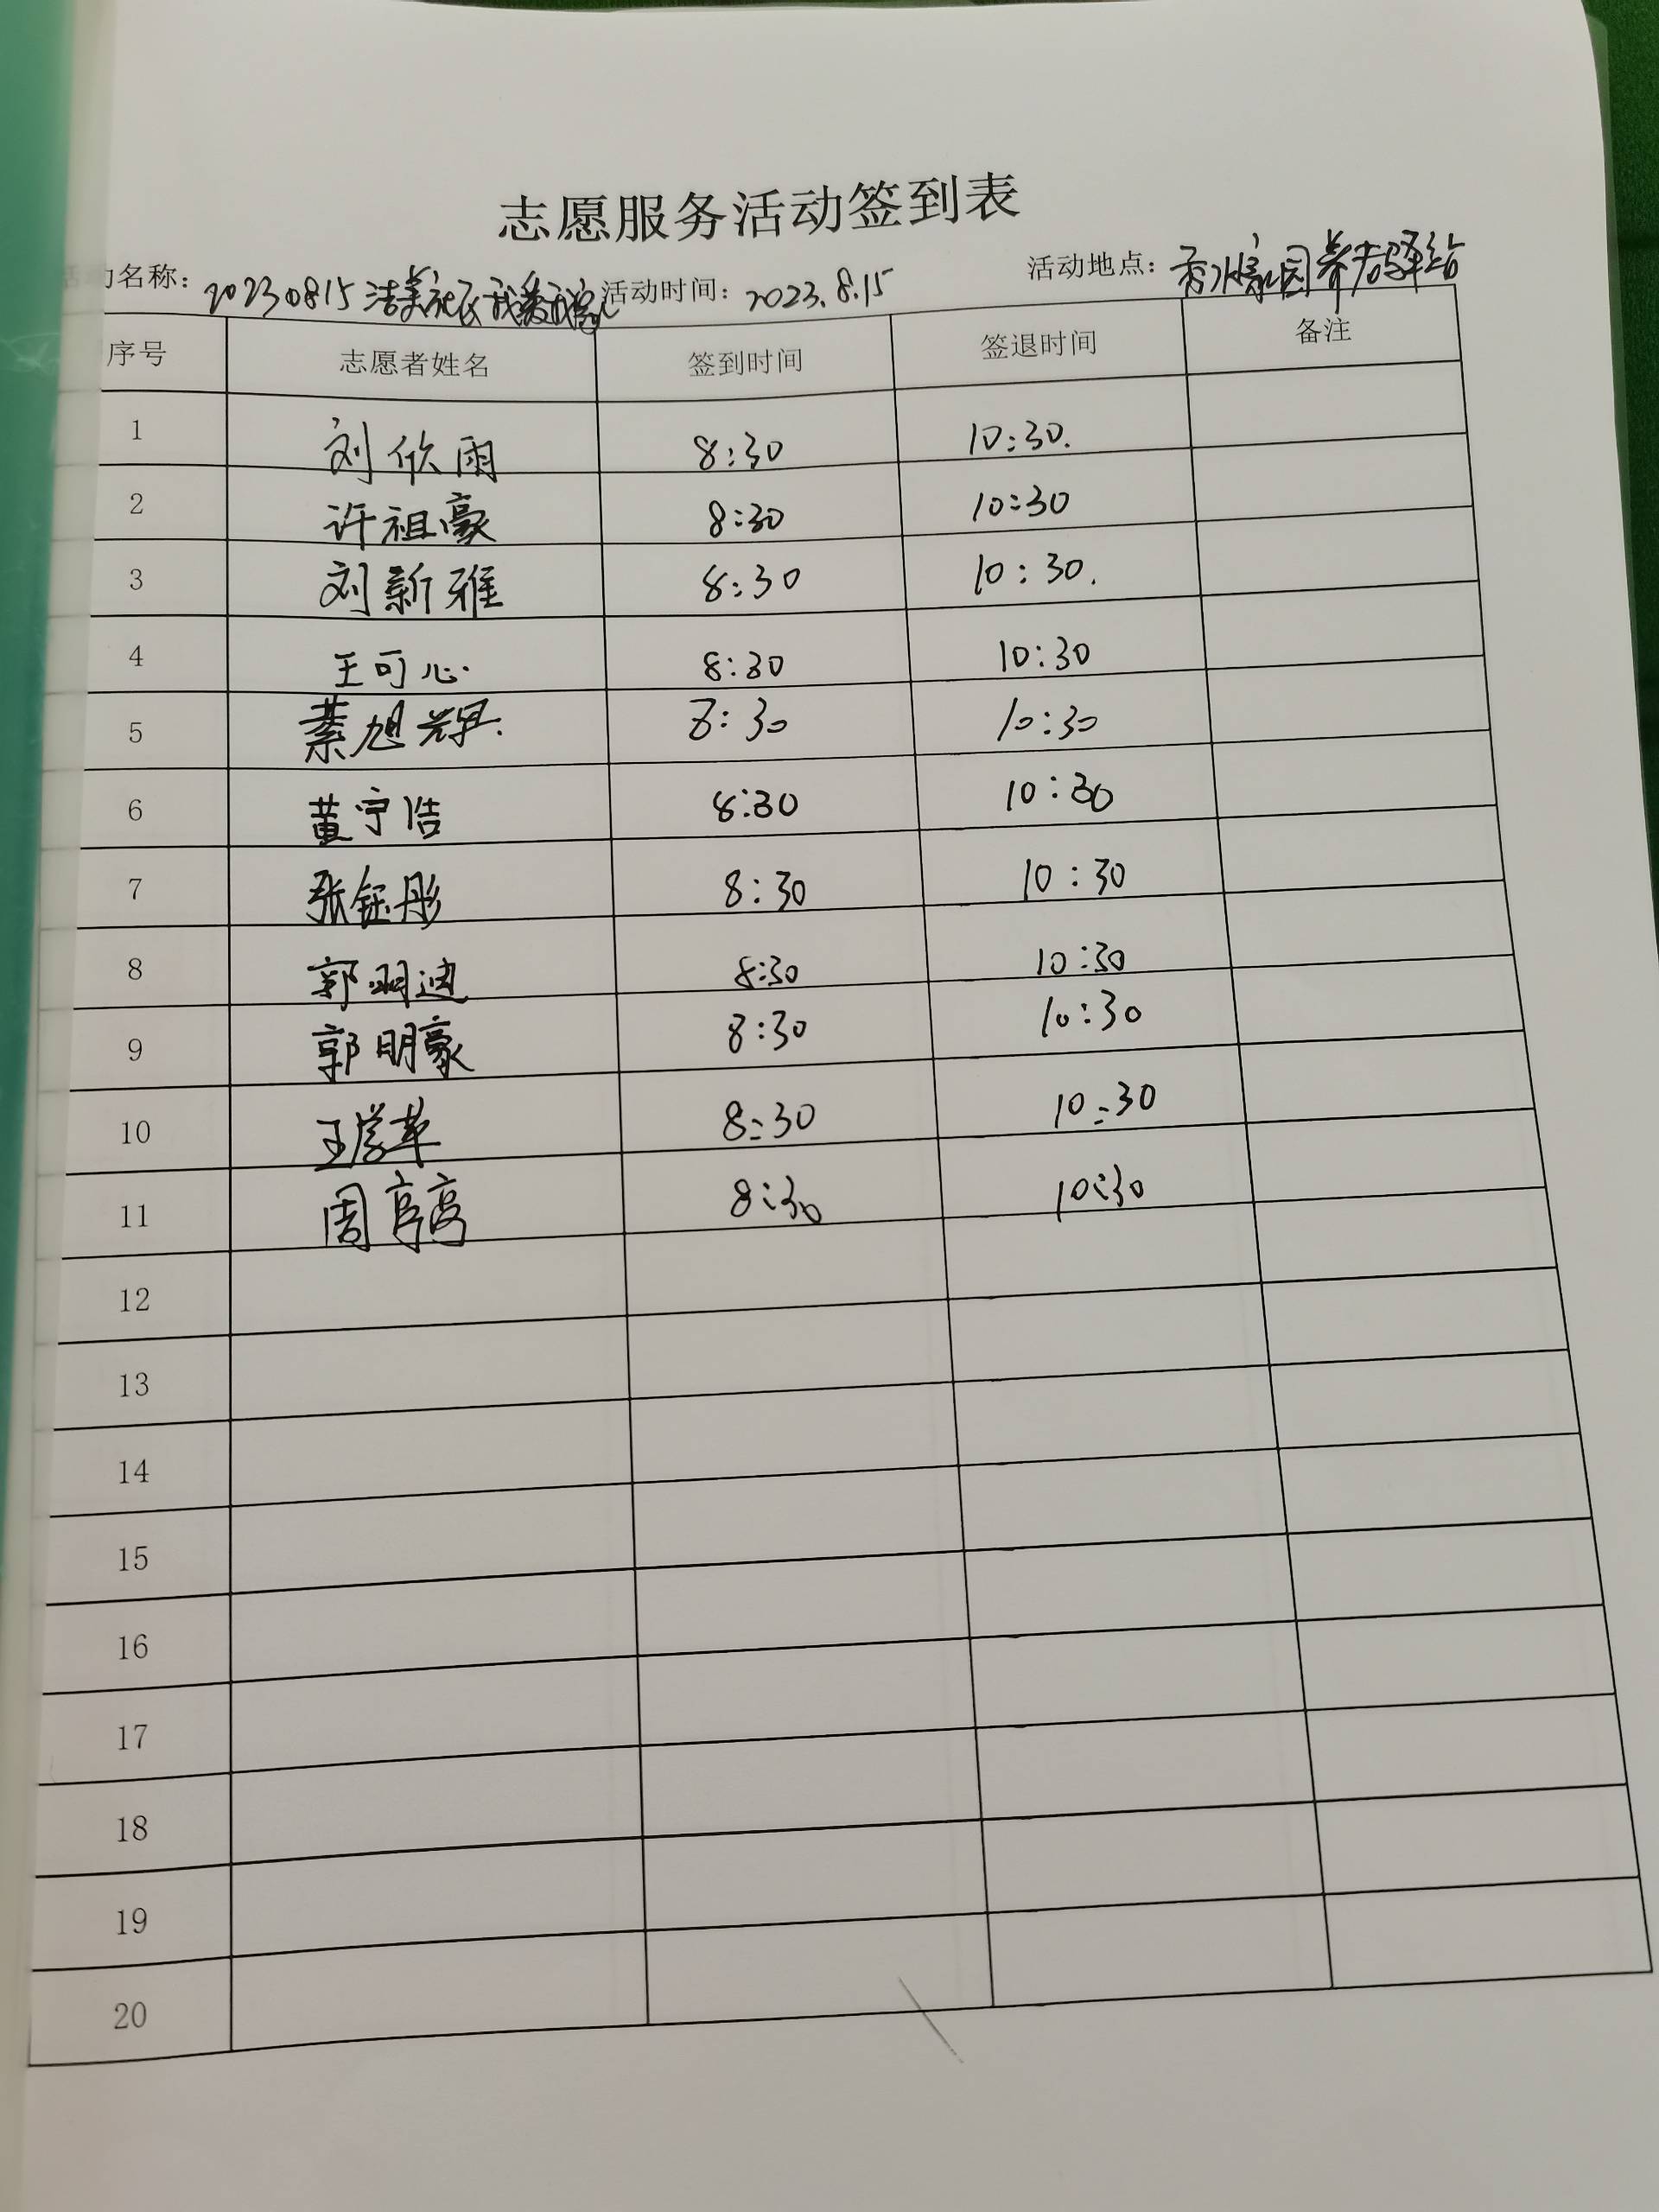 志愿服务活动签到表
活动名称：20230815洁美社区我爱我家 活动时间：2023.8.15 活动地点：秀水家园养老驿站
序号 志愿者姓名 签到时间 签退时间 备注
1 刘欣雨 8:30 10:30.
2 许祖豪 8:30 10:30
3 刘新雅 8:30 10:30.
4 王可心 8:30 10:30
5 綦旭辉 8:30 10:30
6 黄宇浩 8:30 10:30
7 张钰彤 8:30 10:30
8 郭明迪 8:30 10:30
9 郭明豪 8:30 10:30
10 王学苹 8:30 10:30
11 周亭亭 8:30 10:30
12
13
14
15
16
17
18
19
20